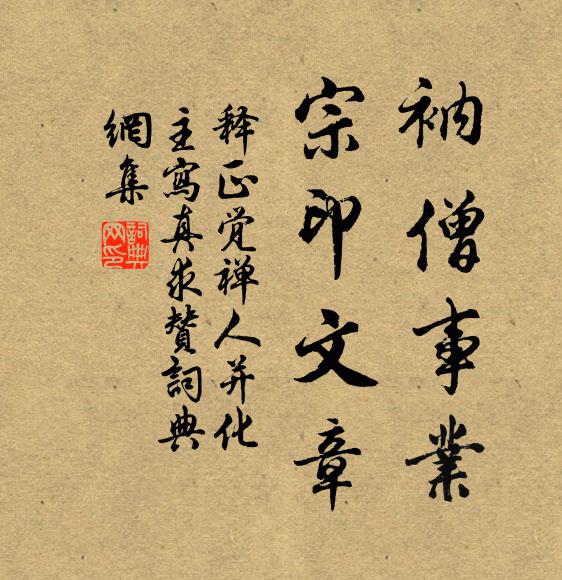 衲僧事業
宗印文章
释正觉禅人并化
主寫真求贊詞典
網集
詞典
网印